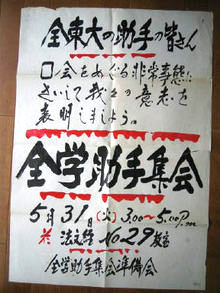 全東大の助手の皆さん
口会をめぐる非常事態に
さいして我々の意志を
表明しましょう。
全学助手集会
5月31日(火)3:00~5:00P.m
於 法文経 No29教室
全学助手集会準備会